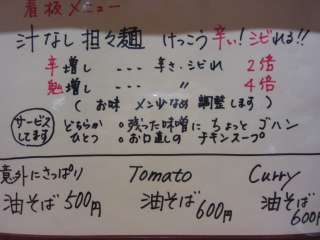 看板メニュー
汁なし 担々麺 けっこう辛い! シビれる!!
辛増し --- 辛さ・シビれ 2倍
勉増し --- 〃 4倍
(お味 メン少なめ 調整します)
サービスしてます どちらかひとつ
・残った味噌に ちょっと ゴハン
・お口直しの チキンスープ
意外にさっぱり 油そば 500円
Tomato 油そば 600円
Curry 油そば 600円